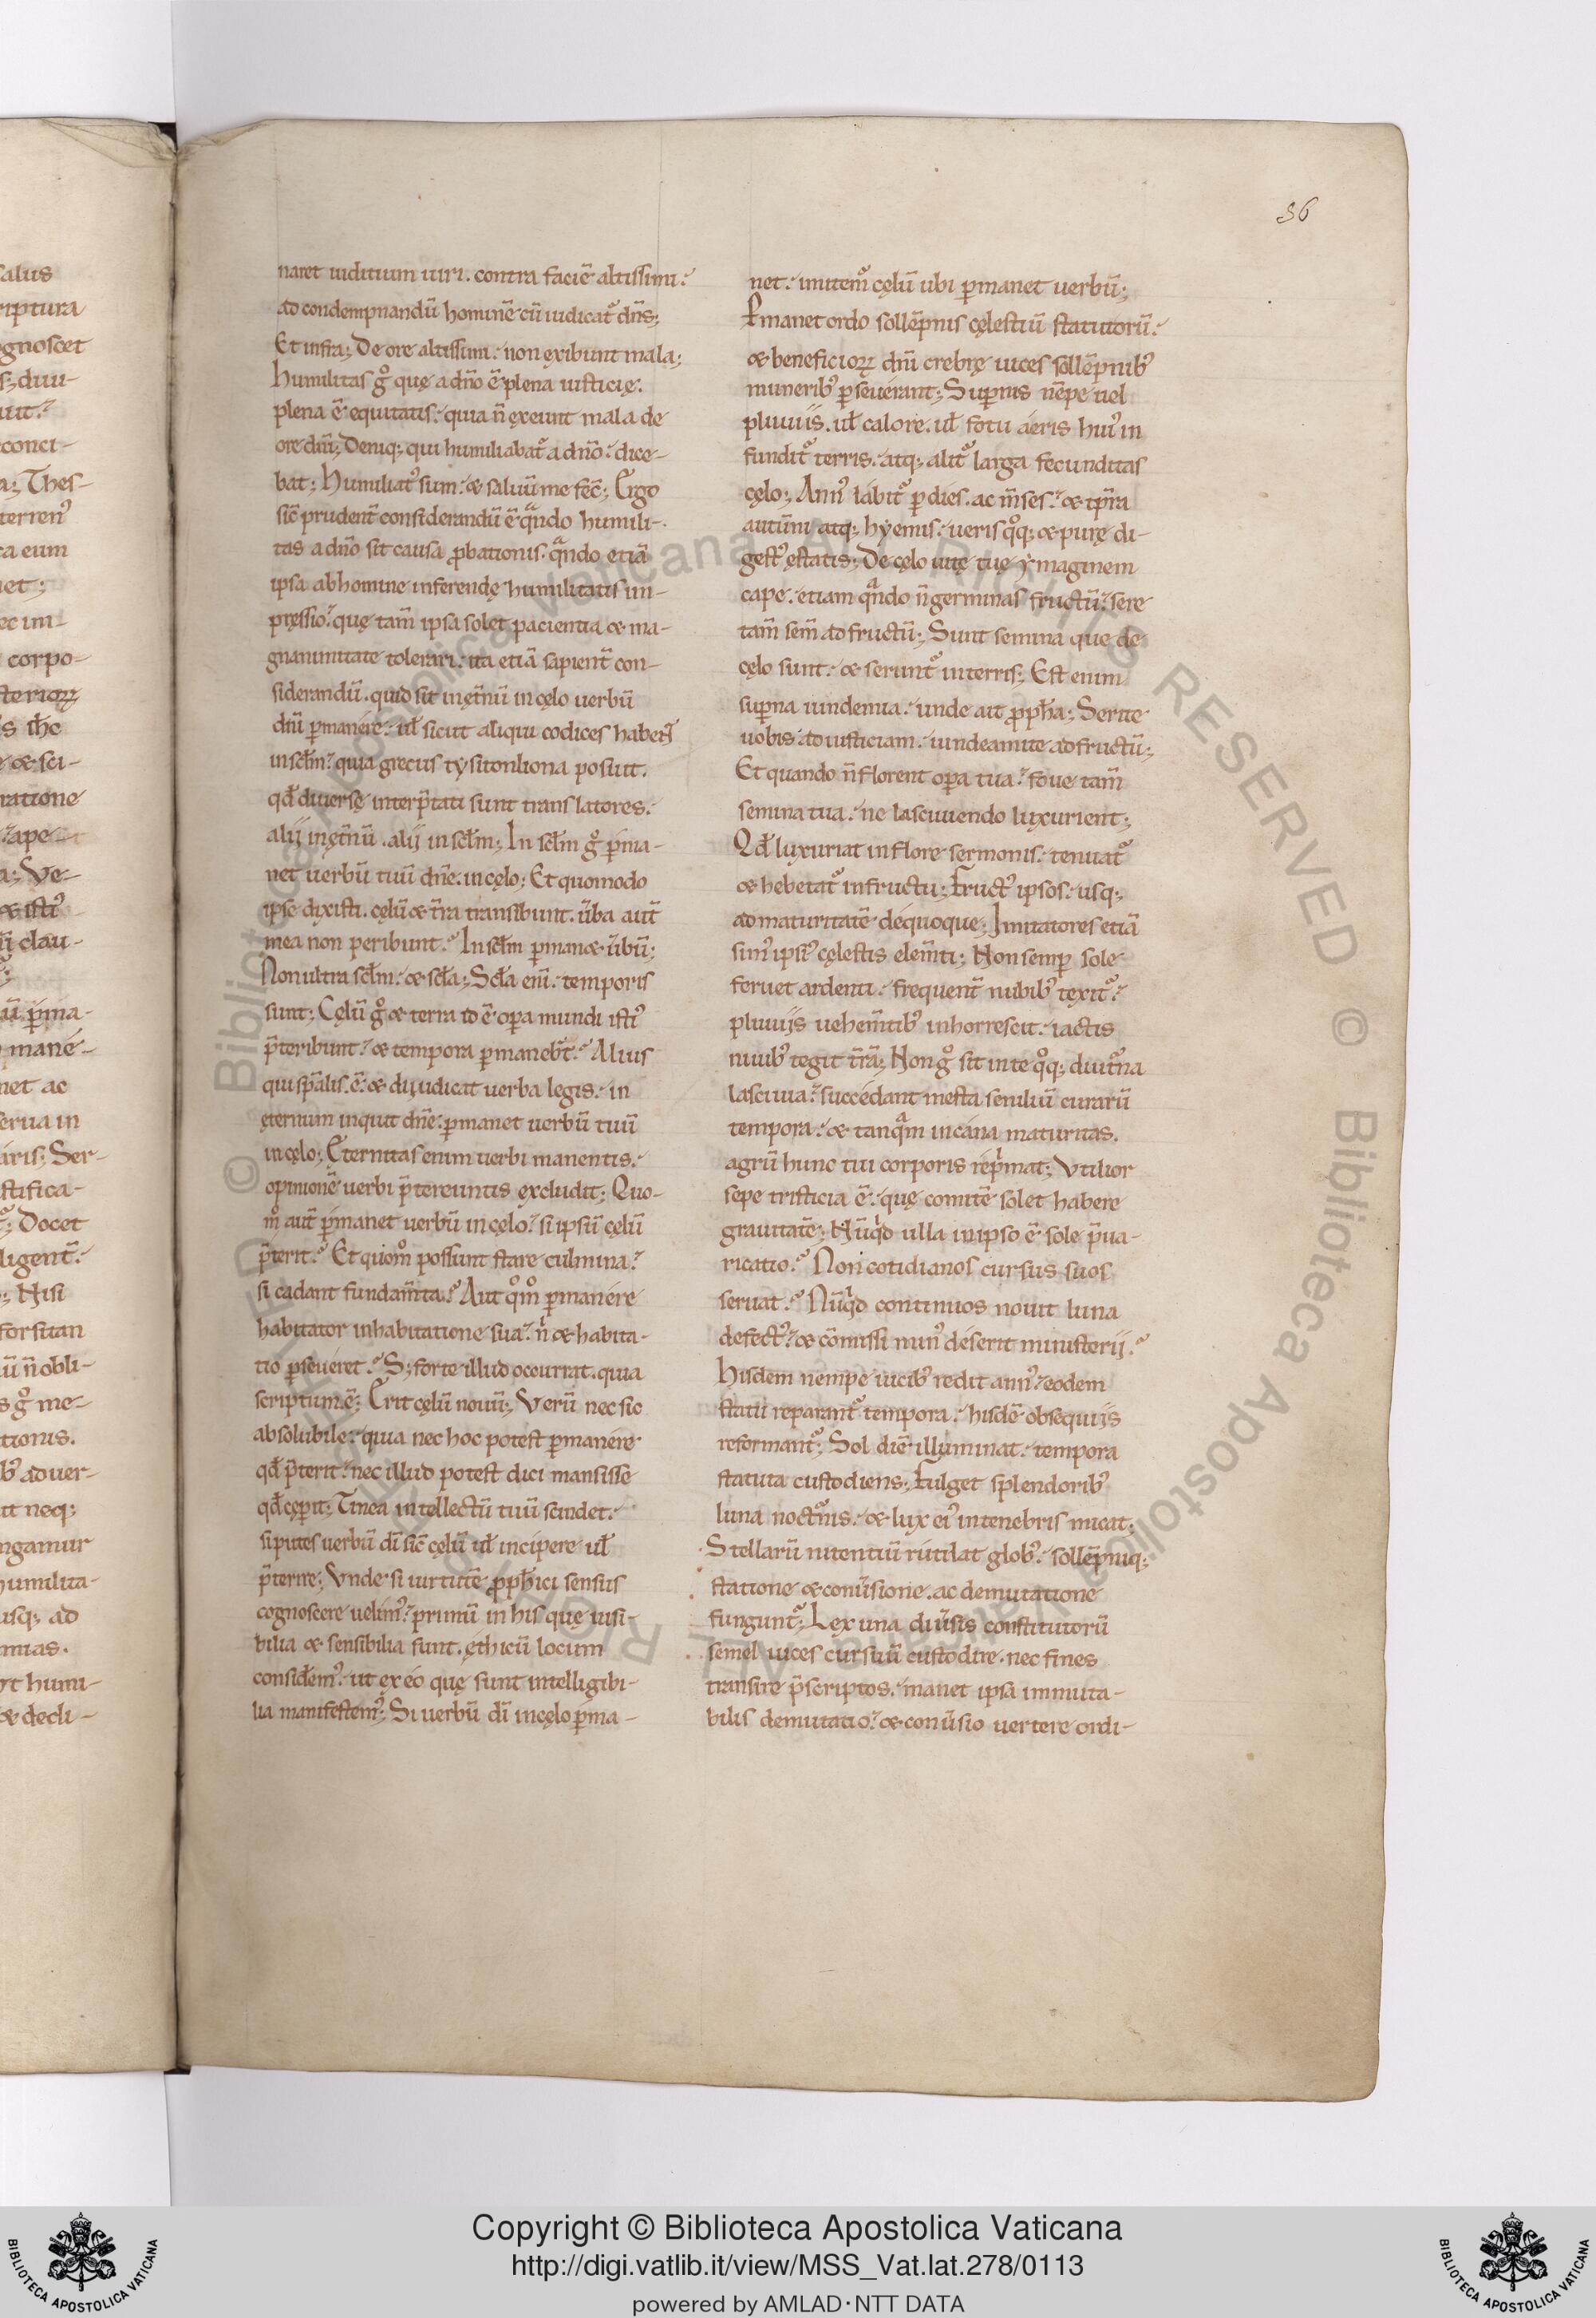 36
naret iuditium uiri. contra faciē altissimi.
ad condempnandū hominē cū iudicat᷒ dn̄s;
Et infra; De ore altissimi. non exibunt mala;
humilitas gͦ quę a dn̄o ē plena iusticię.
plena ē equitatis. quia n̄ exeunt mala de
ore dn̄i; Deniq; qui humiliabat᷒ a dn̄o. dice-
bat; Humiliat᷒ sum. & saluū me fec̄; Ergo
sic̄ prudent̄ considerandū ē qᷓndo humili-
tas a dn̄o sit causa ꝓbationis. qᷓndo etiā
ipsa ab homine inferendę humilitatis im-
pręssio. quę tam̄ ipsa solet pacientia & ma-
gnanimitate tolerari. ita etiā sapient̄ con-
siderandū. quid sit in ęt̄nū in cęlo uerbū
dn̄i ꝑmanere. ul̄ sicut aliqui codices habent
in scl̄m. quia grecus tysitonhona posuit.
qd̄ diuerse interp̄tati sunt translatores.
alij in ęt̄nū. alij in scl̄m; In scl̄m gͦ ꝑma-
net uerbū tuū dn̄e. in cęlo; Et quomodo
ipse dixisti. cęlū & t̄ra transibunt. ūba aut̄
mea non peribunt. In scl̄m ꝑman& ūbū;
Non ultra scl̄m. & scl̄a; Scl̄a eni. temporis
sunt; Cęlū gͦ & terra id ē opa mundi isti᷒
p̄teribunt. & tempora ꝑmaneb̄t. Alius
qui sp̄alis. ē. & diiudicat uerba legis. in
ęternum inquit dn̄e. ꝑmanet uerbū tuū
in cęlo; Eternitas enim uerbi manentis.
opinionē uerbi p̄tereuntis excludit; Quo-
mͦ aut̄ ꝑmanet uerbū in cęlo. si ipsū cęlū
p̄terit. Et quomͦ possunt stare culmina.
si cadant fundam̄ta. Aut qͦmͦ ꝑmanere
habitator in habitatione sua. n & habita-
tio ꝑseueret. S; forte illud occurrat. quia
scriptum ē; Erit cęlū nouū; Verū nec sic
absolubile. quia nec hoc potest ꝑmanere
qd̄ p̄terit. nec illud potest dici mansisse
qd̄ cępit; Tinea intellectū tuū scindet.
si putes uerbū dī sic̄ cęlū ul̄ incipere ul̄
p̄terire; Vnde si uirtutē ꝓph̄ici sensus
cognoscere uelim᷒. primū in his quę uisi-
bilia & sensibilia sunt. ęthicū locum
consid̄em᷒. ut ex eo quę sunt intelligibi-
lia manifestem᷒; Si uerbū dī in cęlo ꝑma-
net. imitem᷒ cęlū ubi ꝑmanet uerbū;
Ꝑmanet ordo sollēpnis cęlestiū statutorū.
& beneficioꝝ dn̄i crebrę uices sollēpnib᷒
munerib᷒ ꝑseuerant; Suꝑnis nēpe uel
pluuiis. ul̄ calore. ul̄ fotu aeris hui᷒ in
fundit᷒ terris. atq; alit᷒ larga fecunditas
cęlo; Ann᷒ labit᷒ ꝑ dies. ac m̄ses. & tp̄ra
autūni atq; hyemis. ueris qͦq; & purę di-
gest᷒ ęstatis; De cęlo uite tuę ymaginem
cape. etiam qᷓndo n̄ germinas fructū. sere
tam̄ sem̄ ad fructū; Sunt semina que de
cęlo sunt. & serunt᷒ in terris; Est enim
suꝑna uindemia. unde ait ꝓph̄a; Serite
uobis ad iusticiam. uindeamite ad fructū;
Et quando n̄ florent opa tua. foue tam̄
semina tua. ne lasciuiendo luxurient;
Qd̄ luxuriat in flore sermonis. tenuat᷒
& hebetat᷒ in fructu; Fruct᷒ ipsos. usq;
ad maturitatē dequoque; Imitatores etiā
sim᷒ ipsi᷒ cęlestis elem̄ti; Non semꝑ sole
feruet ardenti. frequent̄ nubib᷒ texit᷒.
pluuijs uehem̄tib᷒ inhorrescit. iactis
niuib᷒ tegit t̄rā; Non gͦ sit in te qͦq; diut᷒na
lasciuia. succedant mesta seniliū curarū
tempora. & tanqᷓm in cana maturitas.
agrū hunc tui corporis rep̄mat; Vtilior
sepe tristicia ē. quę comitē solet habere
grauitatē; Nūqͥd ulla in ipso ē sole p̄ua-
ricatio. Non cotidianos cursus suos
seruat. Nūqͥd continuos nouit luna
defect᷒. & cōmissi mun᷒ deserit ministerij.
Hisdem nempe uicib᷒ redit ann᷒. eodem
statu reparant᷒ tempora. hisdē obsequiis
reformant᷒; Sol diē illuminat. tempora
statuta custodiens; Fulget splendorib᷒
luna noct᷒nis. & lux ei᷒ in tenebris micat;
Stellarū nitentiū rutilat glob᷒. sollēpniq;
statione & conūsione. ac demutatione
fungunt᷒; Lex una diūsis constitutorū
semel uices cursuū custodire. nec fines
transire p̄scriptos. manet ipsa immuta-
bilis demutatio. & conūsio uertere ordi-
Copyright © Biblioteca Apostolica Vaticana
http://digi.vatlib.it/view/MSS_Vat.lat.278/0113
powered by AMLAD·NTT DATA
BIBLIOTECA APOSTOLICA VATICANA
BIBLIOTECA APOSTOLICA VATICANA